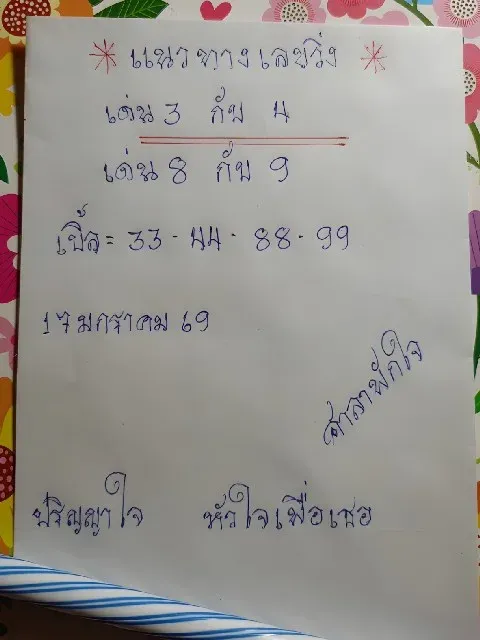 * แนวทางเลขวิ่ง *
เด่น 3 กับ 4
เด่น 8 กับ 9
เบิ้ล = 33 - 44 - 88 - 99
17 มกราคม 69
ศาลาพักใจ
ปริญญาใจ หัวใจเพื่อเธอ